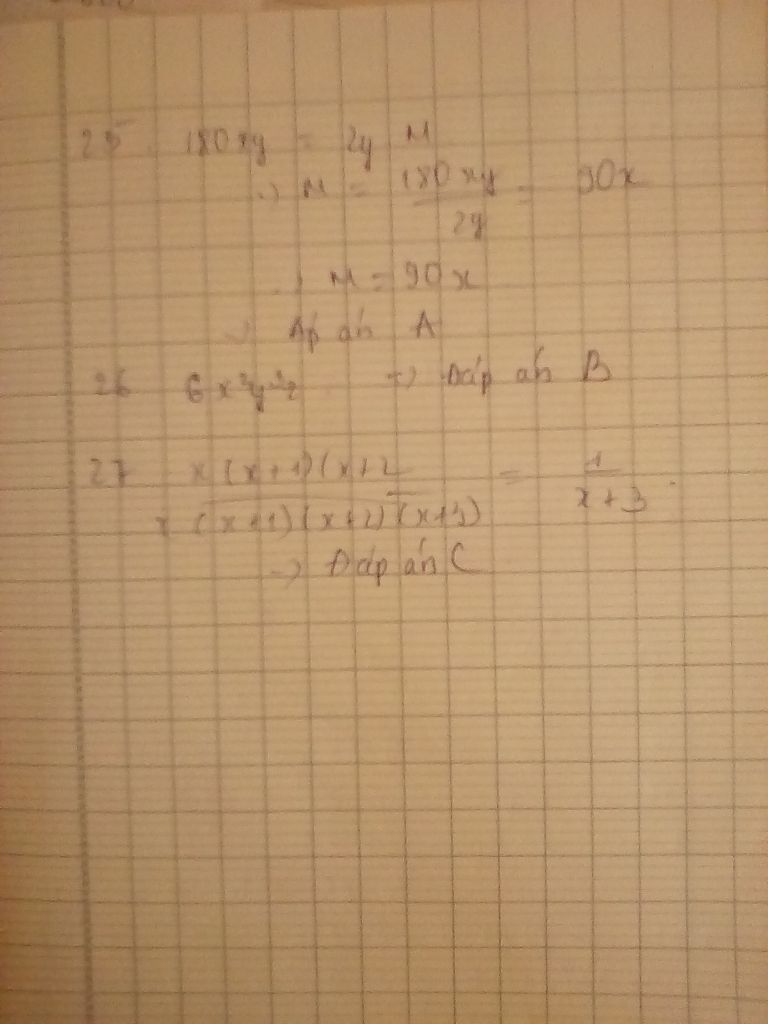 25. 180xy = 2y M
-> M = 180xy / 2y = 90x
-> M = 90x
-> Áp án A
26 6x³y³z -> Đáp án B
27 x(x+1)(x+2 / x(x+1)(x+2)(x+3) = 1 / x+3.
-> Đáp án C